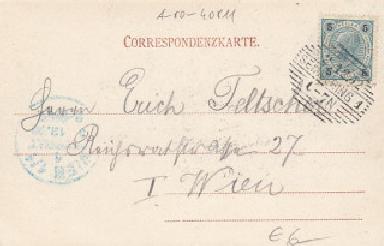 A 10-40 EM
CORRESPONDENZKARTE.
5 5
Herrn Erich Feltscher
Reichsratstrasse 27
I Wien
WIEN
€6-